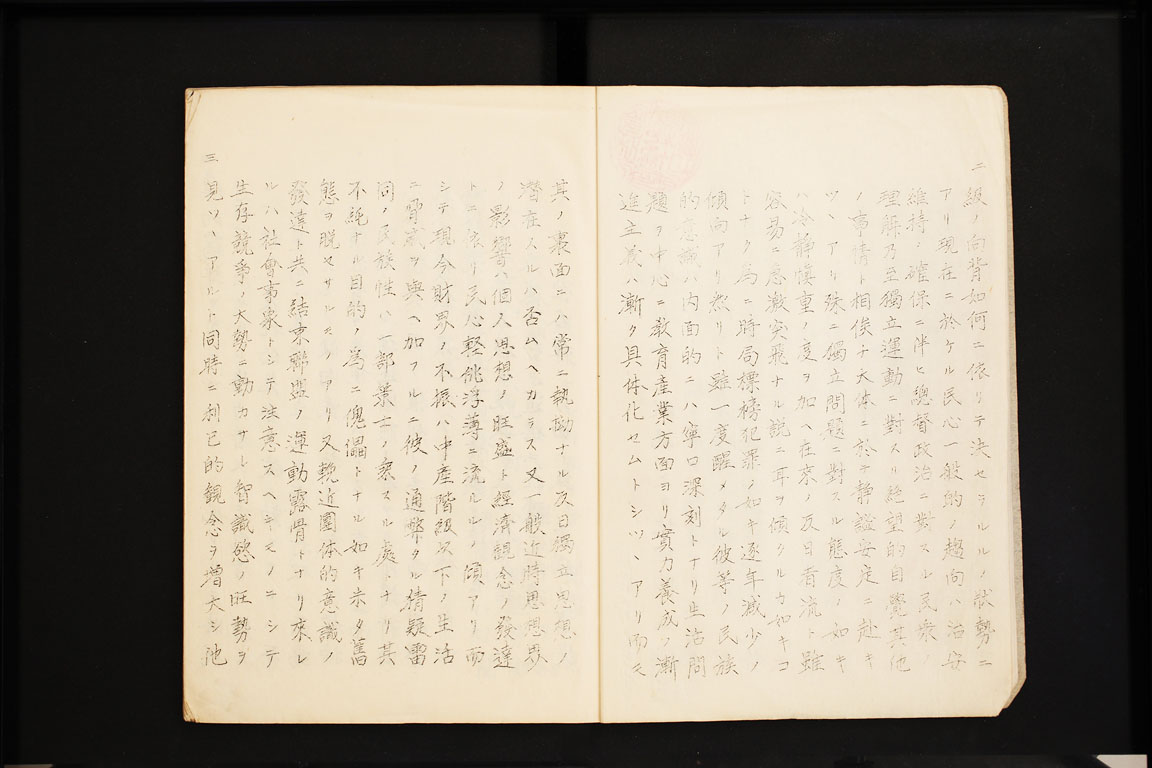 二
級ノ向背如何ニ依リテ決セラルルノ状勢ニ
アリ現在ニ於ケル民心一般的ノ趨向ハ治安
維持ノ確保ニ伴ヒ總督政治ニ對スル民衆ノ
理解乃至獨立運動ニ對スル絶望的自覺其他
ノ事情ト相俟チ大体ニ於テ静謐安定ニ赴キ
ツヽアリ殊ニ獨立問題ニ對スル態度ノ如キ
ハ冷静愼重ノ度ヲ加ヘ在來ノ反日者流ト雖
容易ニ急激突飛ナル説ニ耳ヲ傾クルカ如キコ
トナク為ニ時局標榜犯罪ノ如キ逐年減少ノ
傾向アリ然リト雖一度醒メタル彼等ノ民族
的意識ハ内面的ニハ寧ロ深刻トナリ生活問
題ヲ中心ニ教育産業方面ヨリ實力養成ノ漸
進主義ハ漸ク具体化セムトシツヽアリ而モ
其ノ裏面ニハ常ニ執拗ナル反日獨立思想ノ
潜在スルハ否ムヘカラス又一般近時思想界
ノ影響ハ個人思想ノ旺盛ト經濟観念ノ發達
トニ依リ民心軽佻浮薄ニ流ルルノ傾アリ而
シテ現今財界ノ不振ハ中産階級以下ノ生活
ニ脅威ヲ與ヘ加フルニ彼ノ通弊タル猜疑雷
同ノ民族性ハ一部業士ノ乘スル處トナリ其
不純ナル目的ノ爲ニ傀儡トナル如キ未タ舊
態ヲ脱セサルモノアリ又輓近團体的意識ノ
發達ト共ニ結束聯盟ノ運動露骨トナリ來レ
ルハ社會事象トシテ注意スヘキモノニシテ
生存競爭ノ大勢ニ動カサレ智識慾ノ旺勢ヲ
三
見ツヽアルト同時ニ利己的観念ヲ増大シ他